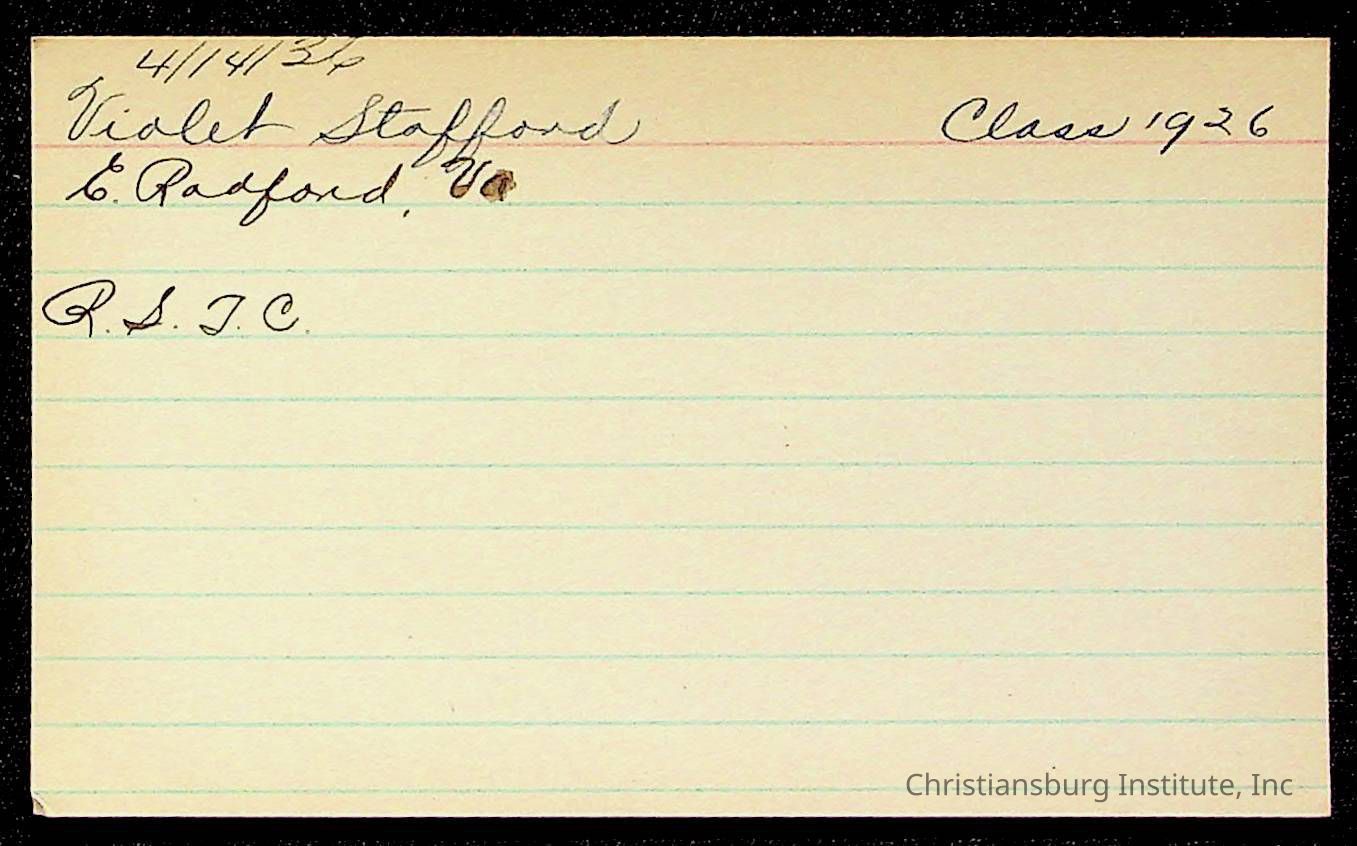 4/14/26
Violet Stafford Class 1926
E. Radford, Va
R. S. T. C.
Christiansburg Institute, Inc